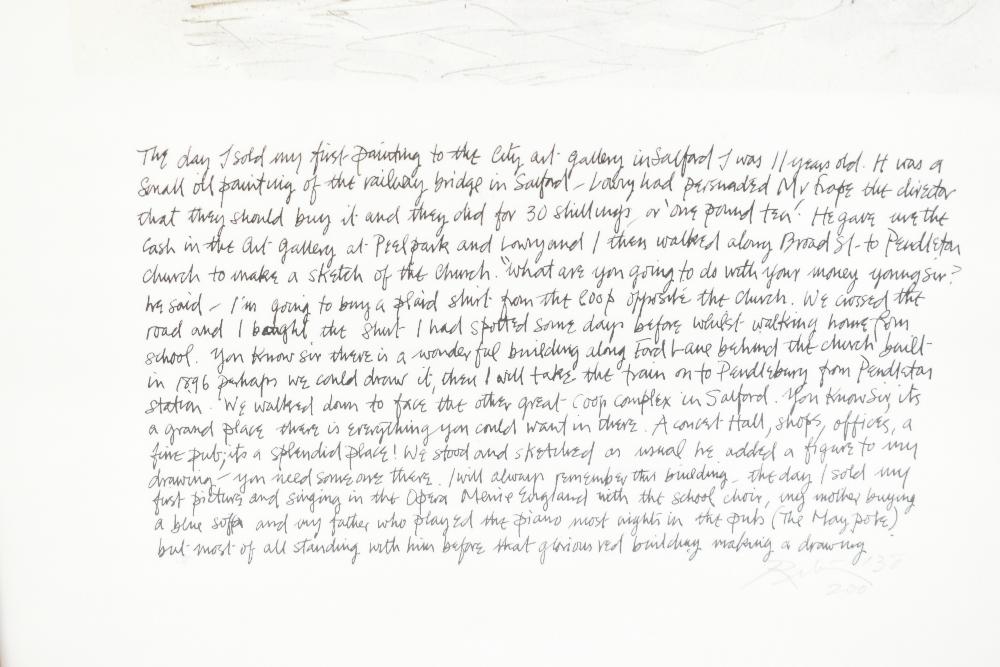 The day I sold my first painting to the City art gallery in Salford I was 11 years old. It was a
small oil painting of the railway bridge in Salford – Lowry had persuaded Mr Frape the director
that they should buy it and they did for 30 shillings, or 'one pound ten'. He gave me the
cash in the Art Gallery at Peel park and Lowry and I then walked along Broad St. to Pendleton
church to make a sketch of the church. "What are you going to do with your money young sir?
he said – I'm going to buy a plaid shirt from the coop opposite the church. We crossed the
road and I bought the shirt I had spotted some days before whilst walking home from
school. You know sir there is a wonderful building along Ford Lane behind the church built
in 1896 perhaps we could draw it, then I will take the train on to Pendlebury from Pendleton
station. We walked down to face the other great Coop complex in Salford. You know Sir, its
a grand place there is everything you could want in there. A concert Hall, shops, offices, a
fine pub, its a splendid place! We stood and sketched as usual he added a figure to my
drawing – you need someone there. I will always remember this building – the day I sold my
first picture and singing in the Opera Merrie England with the school choir, my mother buying
a blue sofa and my father who played the piano most nights in the pub (The Maypole)
but most of all standing with him before that glorious red building making a drawing
200